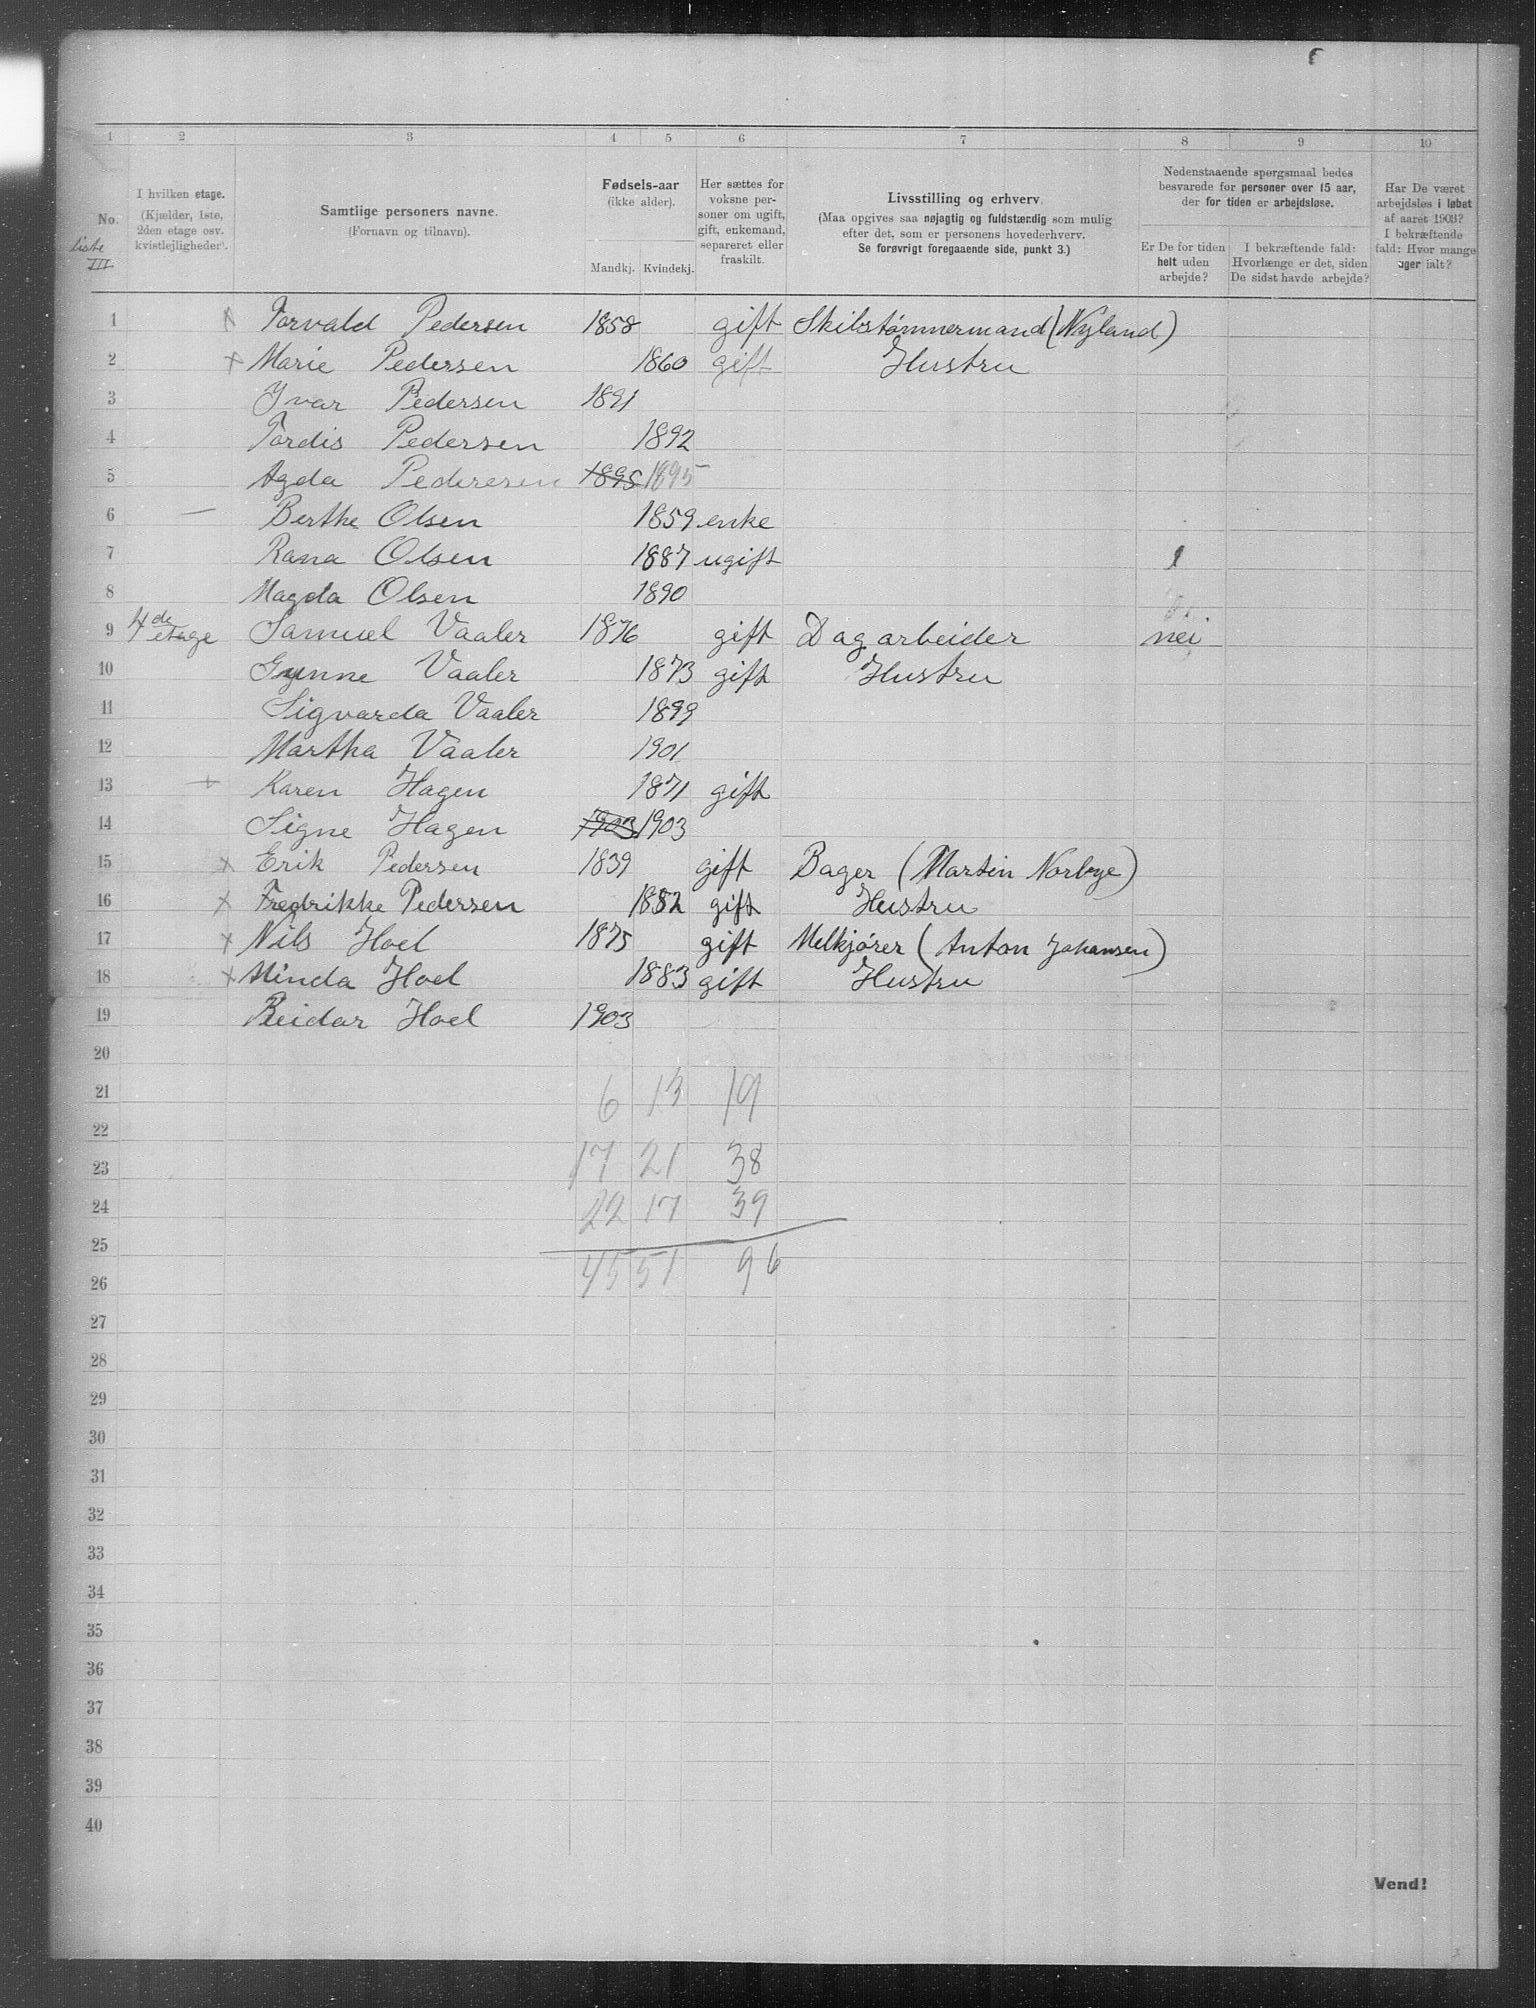 1 2 3 4 5 6 7 8 9 10
No.
liste III
I hvilken etage.
(Kjælder, 1ste,
2den etage osv.
kvistleiligheder).
Samtlige personers navne.
(Fornavn og tilnavn).
Fødsels-aar
(ikke alder).
Mandkj. Kvindekj.
Her sættes for
voksne per-
soner om ugift,
gift, enkemand,
separeret eller
fraskilt.
Livsstilling og erhverv.
(Maa opgives saa nøjagtig og fuldstændig som mulig
efter det, som er personens hovederhverv.
Se forøvrigt foregaaende side, punkt 3.)
Nedenstaaende spørgsmaal bedes
besvarede for personer over 15 aar,
der for tiden er arbejdsløse.
Er De for tiden
helt uden
arbejde?
I bekræftende fald:
Hvorlænge er det, siden
De sidst havde arbejde?
Har De været
arbejdsløs i løbet
af aaret 1903?
I bekræftende
fald: Hvor mange
uger ialt?
1 x Torvald Pedersen 1858 gift Skibstømmermand (Nyland)
2 x Marie Pedersen 1860 gift Hustru
3 Yvar Pedersen 1891
4 Tordis Pedersen 1892
5 Agda Pedersen 1895 1895
6 — Berthe Olsen 1859 enke
7 Rana Olsen 1887 ugift 1
8 Magda Olsen 1890
9 4de etage Samuel Vaaler 1876 gift Dagarbeider nei
10 Gunne Vaaler 1873 gift Hustru
11 Sigvarda Vaaler 1899
12 Martha Vaaler 1901
13 + Karen Hagen 1871 gift
14 Signe Hagen 1903 1903
15 x Erik Pedersen 1839 gift Bager (Martin Norbye)
16 x Fredrikke Pedersen 1852 gift Hustru
17 x Nils Hoel 1875 gift Melkjører (Anton Johansen)
18 x Minda Hoel 1883 gift Hustru
19 Reidar Hoel 1903
20
21 6 13 19
22
23 17 21 38
24 22 17 39
25
26 45 51 96
27
28
29
30
31
32
33
34
35
36
37
38
39
40
Vend!